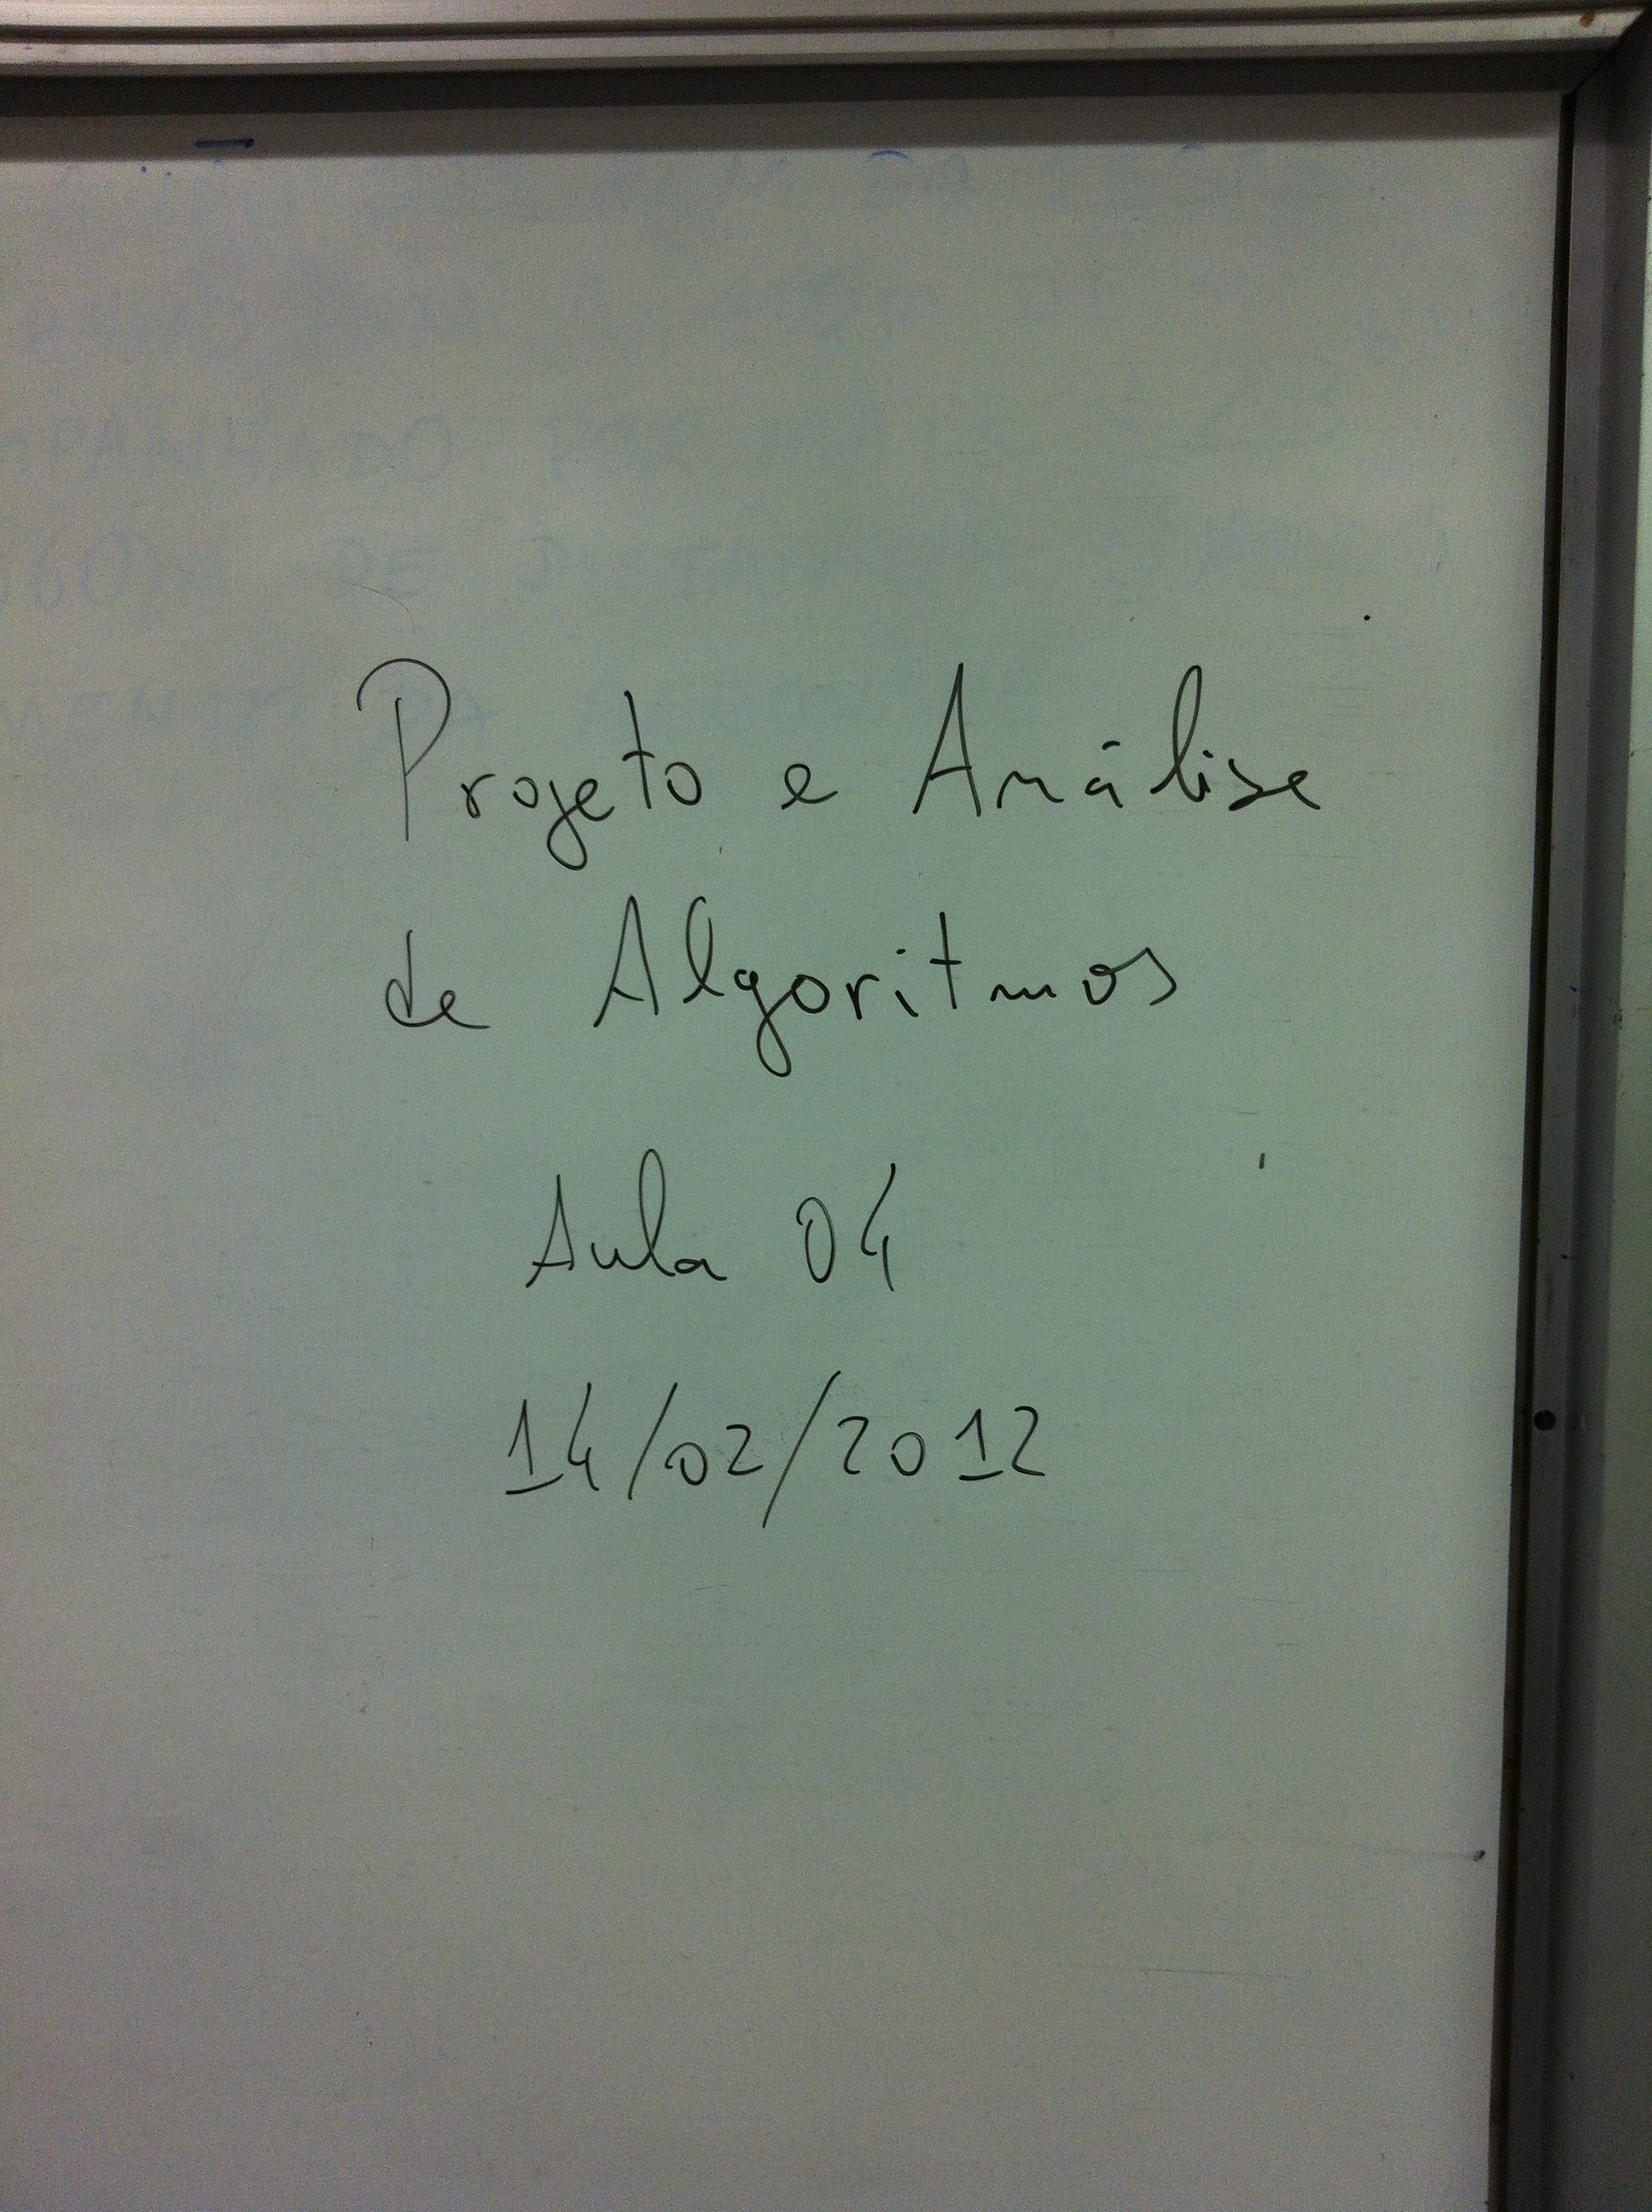 Projeto e Análise
de Algoritmos
Aula 04
14/02/2012